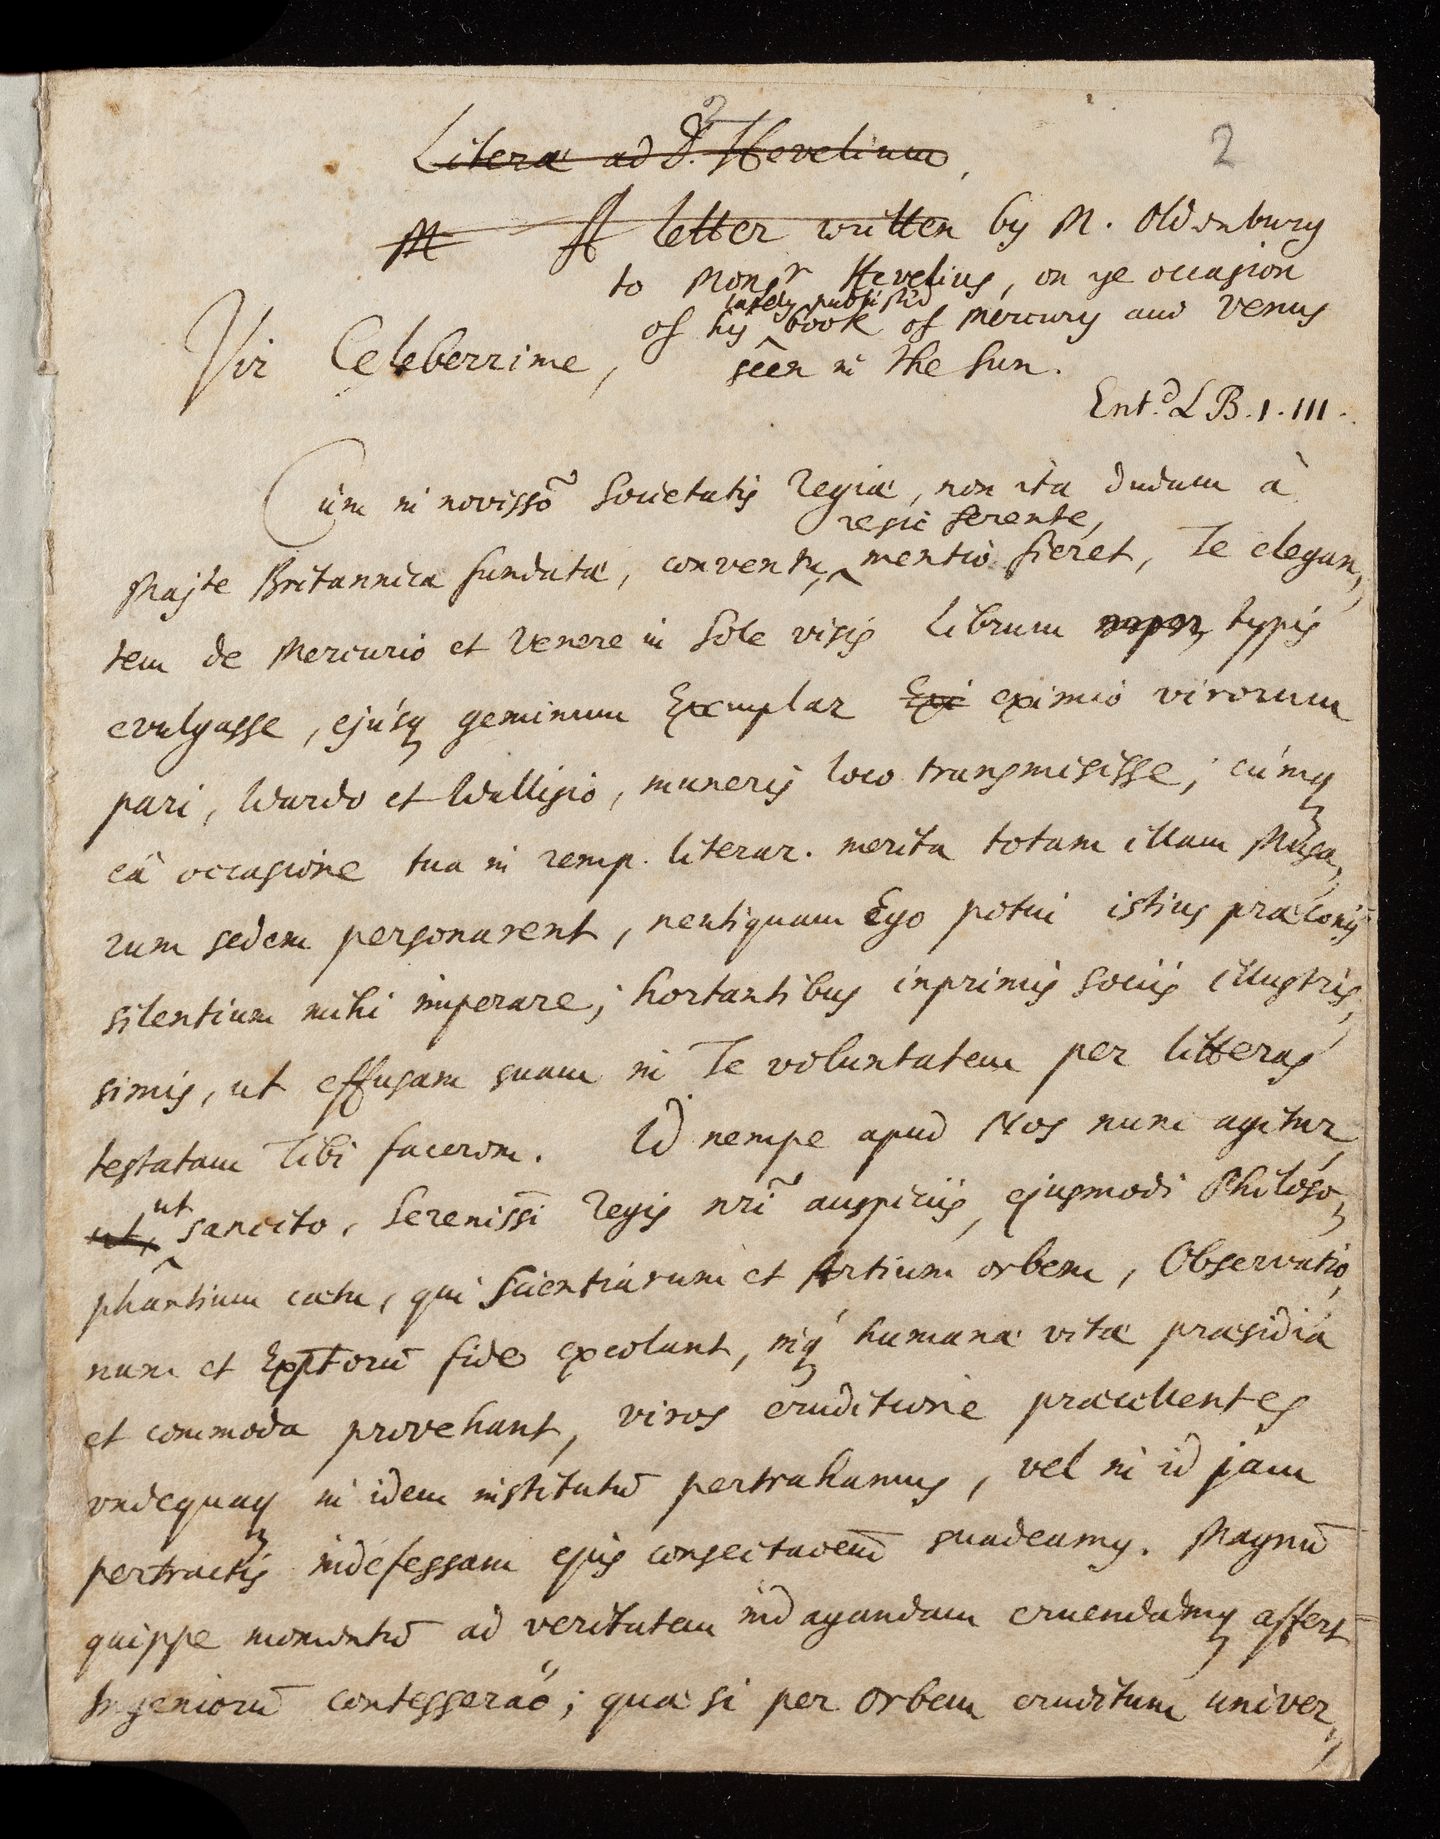 2
Literæ ad D. Hevelium,
2
M A letter written by M. Oldenburg
to Monsr Hevelius, on ye occasion
lately publish'd
of his book of Mercury and Venus
Vir Celeberrime, séen in the Sun.
Ent.d L B. 1. 111.
Cùm in novissõ Societatis Regiæ, non ita dudum à
rege serente,
Majte Britannica fundatæ, conventu, mentio fieret, Te elegan,,
tem de Mercurio et Venere in Sole visis Librum nuper typis
evulgasse, ejúsq geminum Exemplar Exi eximio virorum
pari, Wardo et Wallisio, muneris loco transmisisse; cúmq
eâ occasione tua in remp. literar. merita totam illam Musa,,
rum sedem personarent, neutiquam Ego potui istius præconij
silentium mihi imperare; hortantibus inprimis sociis illustris,,
simis, ut effusam suam in Te voluntatem per litteras
testatam Tibi facerem. Id nempe apud Nos nunc agitur,
ut
ut, sancito, Serenissi Regis nri auspiciis, ejusmodi Philoso,,
phantium cœtu, qui Scientiarum et Artium orbem, Observatio,,
num et Exptorũ fide excolant, inq humanæ vitæ præsidia
et commoda provehant, viros eruditione præcellentes
undequaq in idem institutũ pertrahamus, vel in id jam
pertractis indefessam ejus consectaoem suadeamus. Magnũ
quippe momentũ ad veritatem indagandam eruendamq affert
Ingeniorũ contesserao; quæ si per Orbem eruditum univer,,